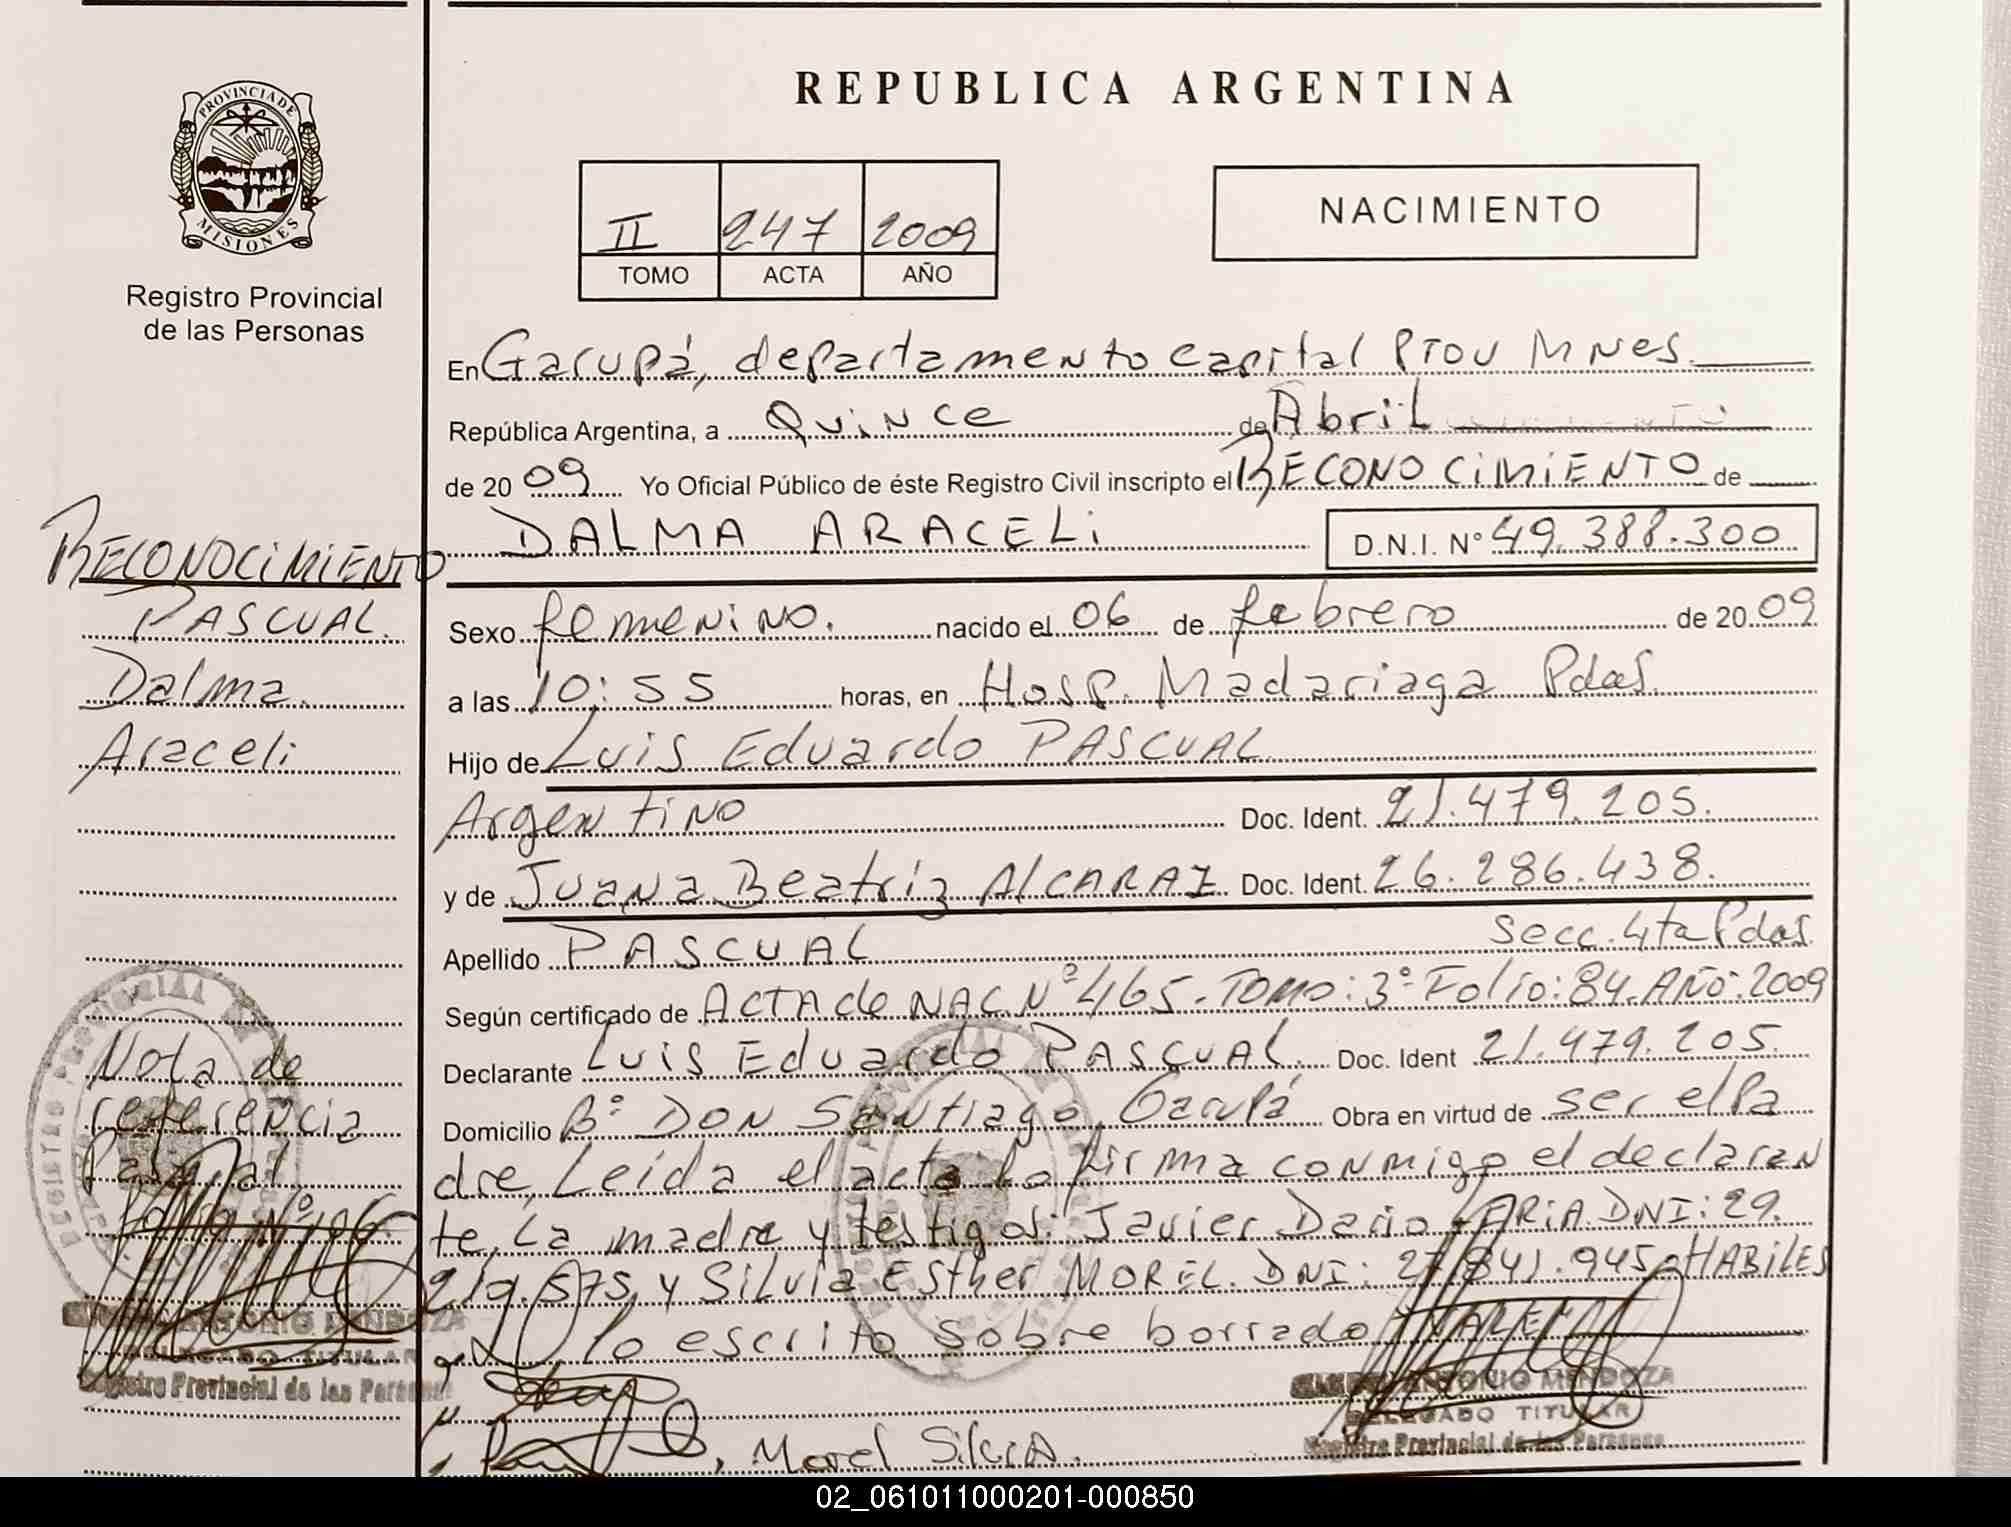 REPUBLICA ARGENTINA
PROVINCIA DE
MISIONES
Registro Provincial
de las Personas
II 247 2009
TOMO ACTA AÑO
NACIMIENTO
En Garupá, departamento capital Prov Mnes.
República Argentina, a Quince de Abril
de 2009 Yo Oficial Público de éste Registro Civil inscripto el RECONOCIMIENTO de
DALMA ARACELi D.N.I. N° 49.388.300
Sexo femenino. nacido el 06 de febrero de 2009
a las 10:55 horas, en Hosp. Madariaga Pdas.
Hijo de Luis Eduardo PASCUAL
Argentino Doc. Ident. 21.479.205.
y de Juana Beatriz ALCARAZ Doc. Ident. 26.286.438.
Apellido PASCUAL secc. 4ta Pdas.
Según certificado de ACTA de NAC N° 465. TOMO: 3° Folio: 84. AÑO: 2009
Declarante Luis Eduardo PASCUAL. Doc. Ident 21.479.205.
Domicilio B° DON Santiago, Garupá Obra en virtud de ser el Pa
dre, Leida el acta la firma conmigo el declaran
te, La madre y testigos: Javier Dario DNI: 29.
219.575, y Silvia Esther MOREL. DNI: 27.841.945. HABILES
lo escrito sobre borrado VALE
, Morel Silvia.
RECONOCIMIENTO
PASCUAL.
Dalma.
Araceli
Nota de
referencia
Pascual
Folio N°
ANTONIO MENDOZA
DELEGADO TITULAR
Registro Provincial de las Personas
ANTONIO MENDOZA
DELEGADO TITULAR
Registro Provincial de las Personas
02_061011000201-000850